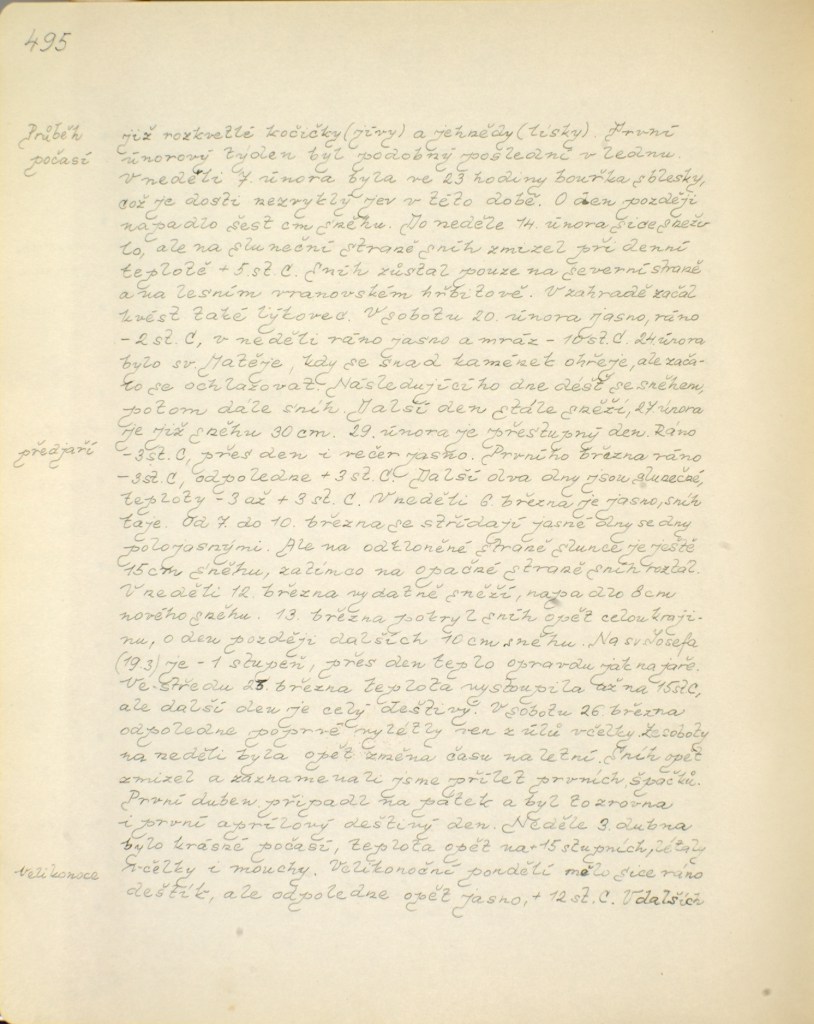 495
Průběh
počasí
již rozkvetlé kočičky (jívy) a jehnědy (lísky). První
únorový týden byl podobný poslední v lednu.
V neděli 7. února byla ve 23 hodiny bouřka s blesky,
což je dosti nezvyklý jev v této době. O den později
napadlo šest cm sněhu. Do neděle 14. února sice sněži-
lo, ale na sluneční straně sníh zmizel při denní
teplotě + 5 st. C. Sníh zůstal pouze na severní straně
a na lesním vranovském hřbitově. V zahradě začal
kvést také lýkovec. V sobotu 20. února jasno, ráno
- 2 st. C, v neděli ráno jasno a mráz - 10 st. C. 24. února
bylo sv. Matěje, kdy se snad kamének ohřeje, ale zača-
lo se ochlazovat. Následujícího dne déšť se sněhem,
potom dále sníh. Další den stále sněží, 27. února
je již sněhu 30 cm. 29. února je přestupný den. Ráno
předjaří
- 3 st. C, přes den i večer jasno. Prvního března ráno
- 3 st. C, odpoledne + 3 st. C. Další dva dny jsou slunečné,
teploty - 3 až + 3 st. C. V neděli 6. března je jasno, sníh
taje. Od 7. do 10. března se střídají jasné dny se dny
polojasnými. Ale na odkloněné straně slunce je ještě
15 cm sněhu, zatímco na opačné straně sníh roztál.
V neděli 12. března vydatně sněží, napadlo 8 cm
nového sněhu. 13. března pokryl sníh opět celou kraji-
nu, o den později dalších 10 cm sněhu. Na sv. Josefa
(19.3) je - 1 stupeň, přes den teplo opravdu jak na jaře.
Ve středu 23. března teplota vystoupila až na 15 st C,
ale další den je celý deštivý. V sobotu 26. března
odpoledne poprvé vylétly ven z úlů včelky. Ze soboty
na neděli byla opět změna času na letní. Sníh opět
zmizel a zaznamenali jsme přílet prvních špačků.
První duben připadl na pátek a byl to zrovna
i první aprílový deštivý den. Neděle 3. dubna
bylo krásné počasí, teplota opět na + 15 stupních, létaly
Velikonoce
včelky i mouchy. Velikonoční pondělí mělo sice ráno
deštík, ale odpoledne opět jasno, + 12 st. C. V dalších